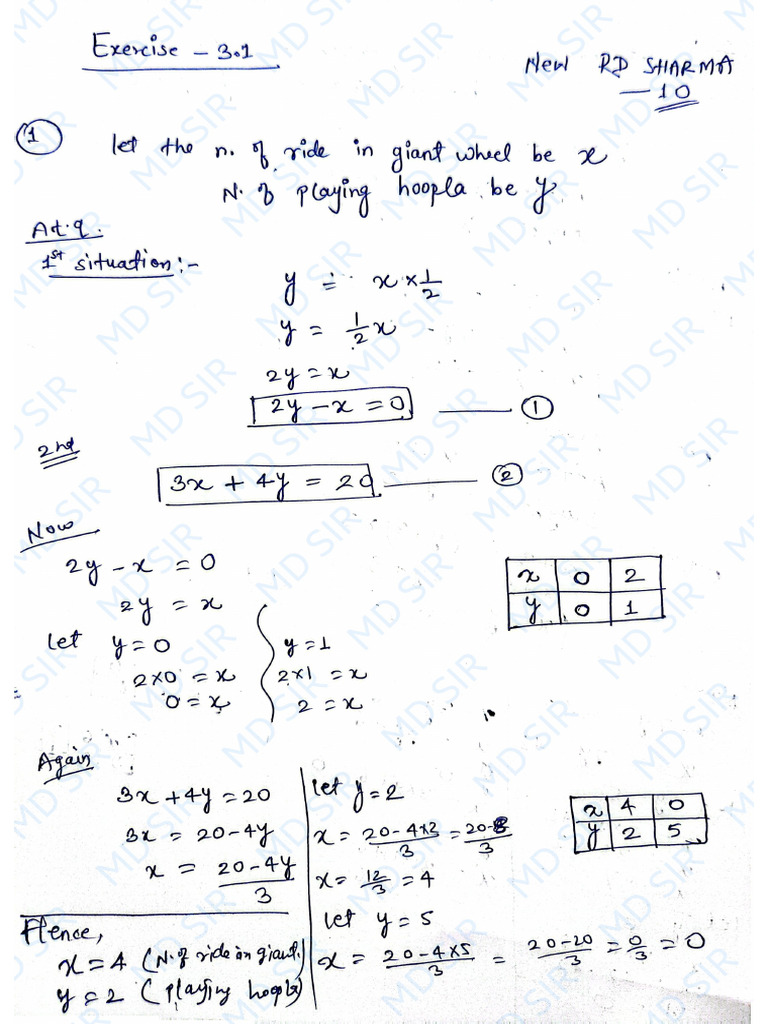 Exercise – 3.1
New RD SHARMA
— 10
① let the n. of ride in giant wheel be x
N. of playing hoopla be y
At.q.
1st situation:-
y = x × 1/2
y = 1/2 x
2y = x
2y – x = 0 —— ①
2nd
3x + 4y = 20 —— ②
Now
2y – x = 0
2y = x
x 0 2
y 0 1
let y = 0
2×0 = x
0 = x
y = 1
2×1 = x
2 = x
Again
3x + 4y = 20
3x = 20 – 4y
x = (20 – 4y)/3
let y = 2
x = (20 – 4×2)/3 = (20 – 8)/3
x = 12/3 = 4
let y = 5
x = (20 – 4×5)/3 = (20 – 20)/3 = 0/3 = 0
x 4 0
y 2 5
Hence,
x = 4 (N. of ride in giant.)
y = 2 (playing hoopla)
MD SIR